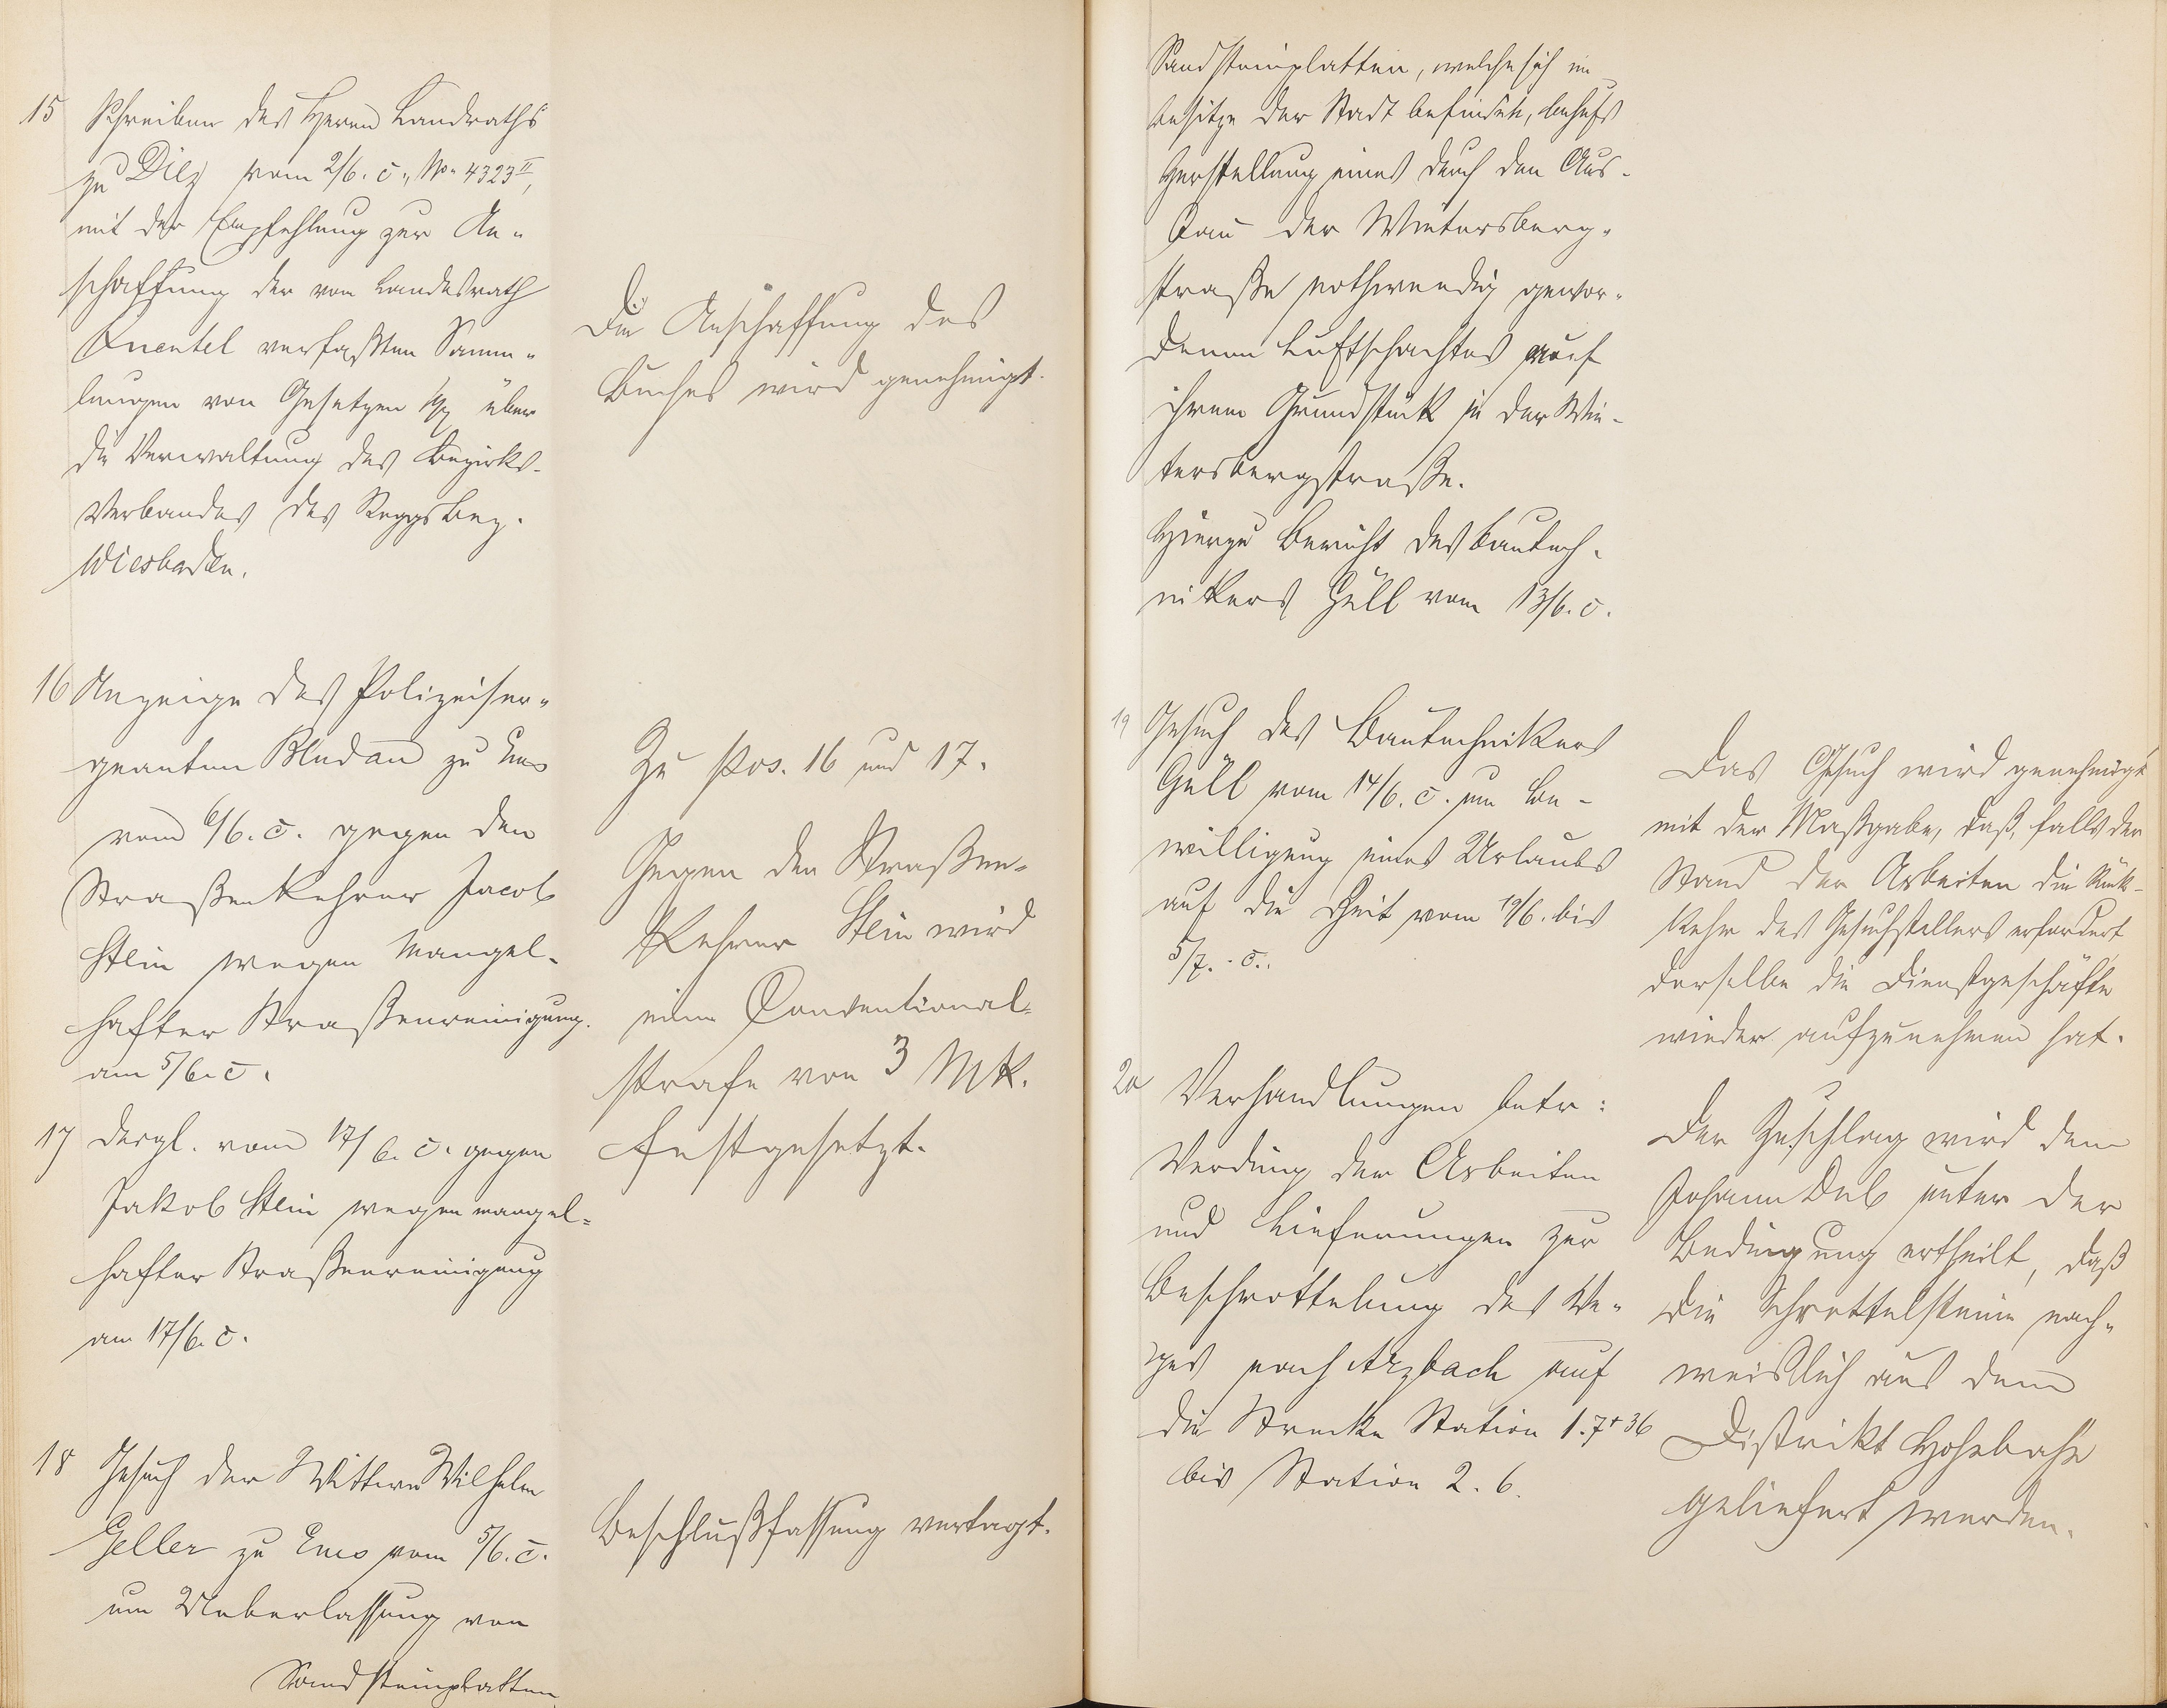 15 Schreiben des Herrn Landraths
zu Diez vom 2/6. c., No. 4323 II,
mit der Empfehlung zur An-
schaffung der vom Landesrath
verfaßten Samm-
lungen von Gesetzen pp über
die Verwaltung des Bezirks-
Verbandes des Reggsbez.
Wiesbaden.
Die Anschaffung des
Buches wird genehmigt.
16 Anzeige des Polizeiser-
geanten Bludau zu Ems
vom 6/6. c. gegen den
Straßenkehrer Jacob
Stein wegen mangel-
hafter Straßenreinigung
am 5/6. c.
17 Dergl. vom 17/6. c. gegen
Jakob Stein wegen mangel-
hafter Straßenreinigung
am 17/6. c.
Zu Pos. 16 und 17.
Gegen den Straßen-
kehrer Stein wird
eine Conventional-
strafe von 3 Mk.
festgesetzt.
18 Gesuch der Wittwe Wilhelm
Geller zu Ems vom 5/6. c.
um Ueberlassung von
Sandsteinplatten
Beschlußfassung vertagt.
Sandsteinplatten, welche sich im
Besitze der Stadt befinden, behufs
Herstellung eines durch den Aus-
bau der Wintersberg-
straße nothwendig gewor-
denen Luftschachtes auf
ihrem Grundstück in der Win-
tersbergstraße.
Hierzu Bericht des Bautech-
nikers Güll vom 13/6. c.
19 Gesuch des Bautechnikers
Güll vom 14/6. c. um Be-
willigung eines Urlaubs
auf die Zeit vom 19/6. bis
5/7. c.
Das Gesuch wird genehmigt
mit der Maßgabe, daß, falls der
Stand der Arbeiten die Rück-
kehr des Gesuchstellers erfordert
derselbe die Dienstgeschäfte
wieder aufzunehmen hat.
20 Verhandlungen betr:
Verding der Arbeiten
und Lieferungen zur
Beschrottelung des We-
ges nach Arzbach auf
die Strecke Station 1.7+36
bis Station 2.6.
Der Zuschlag wird dem
Johann unter der
Bedingung ertheilt, daß
die Schrottelsteine nach-
weislich aus dem
Distrikt Hohebahn
geliefert werden.